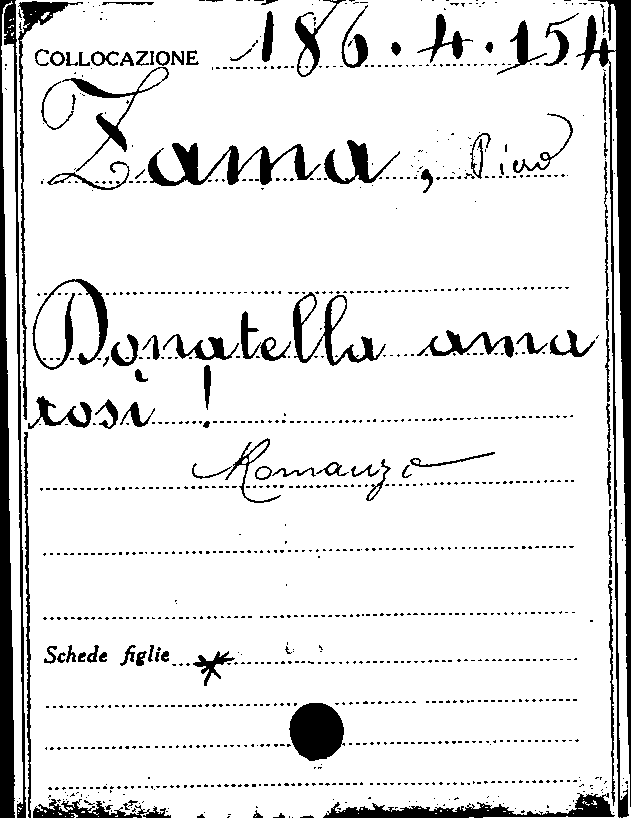 COLLOCAZIONE 186.4.154
Zama, Pino
Donatella ama
così !
Romanzo
Schede figlie *